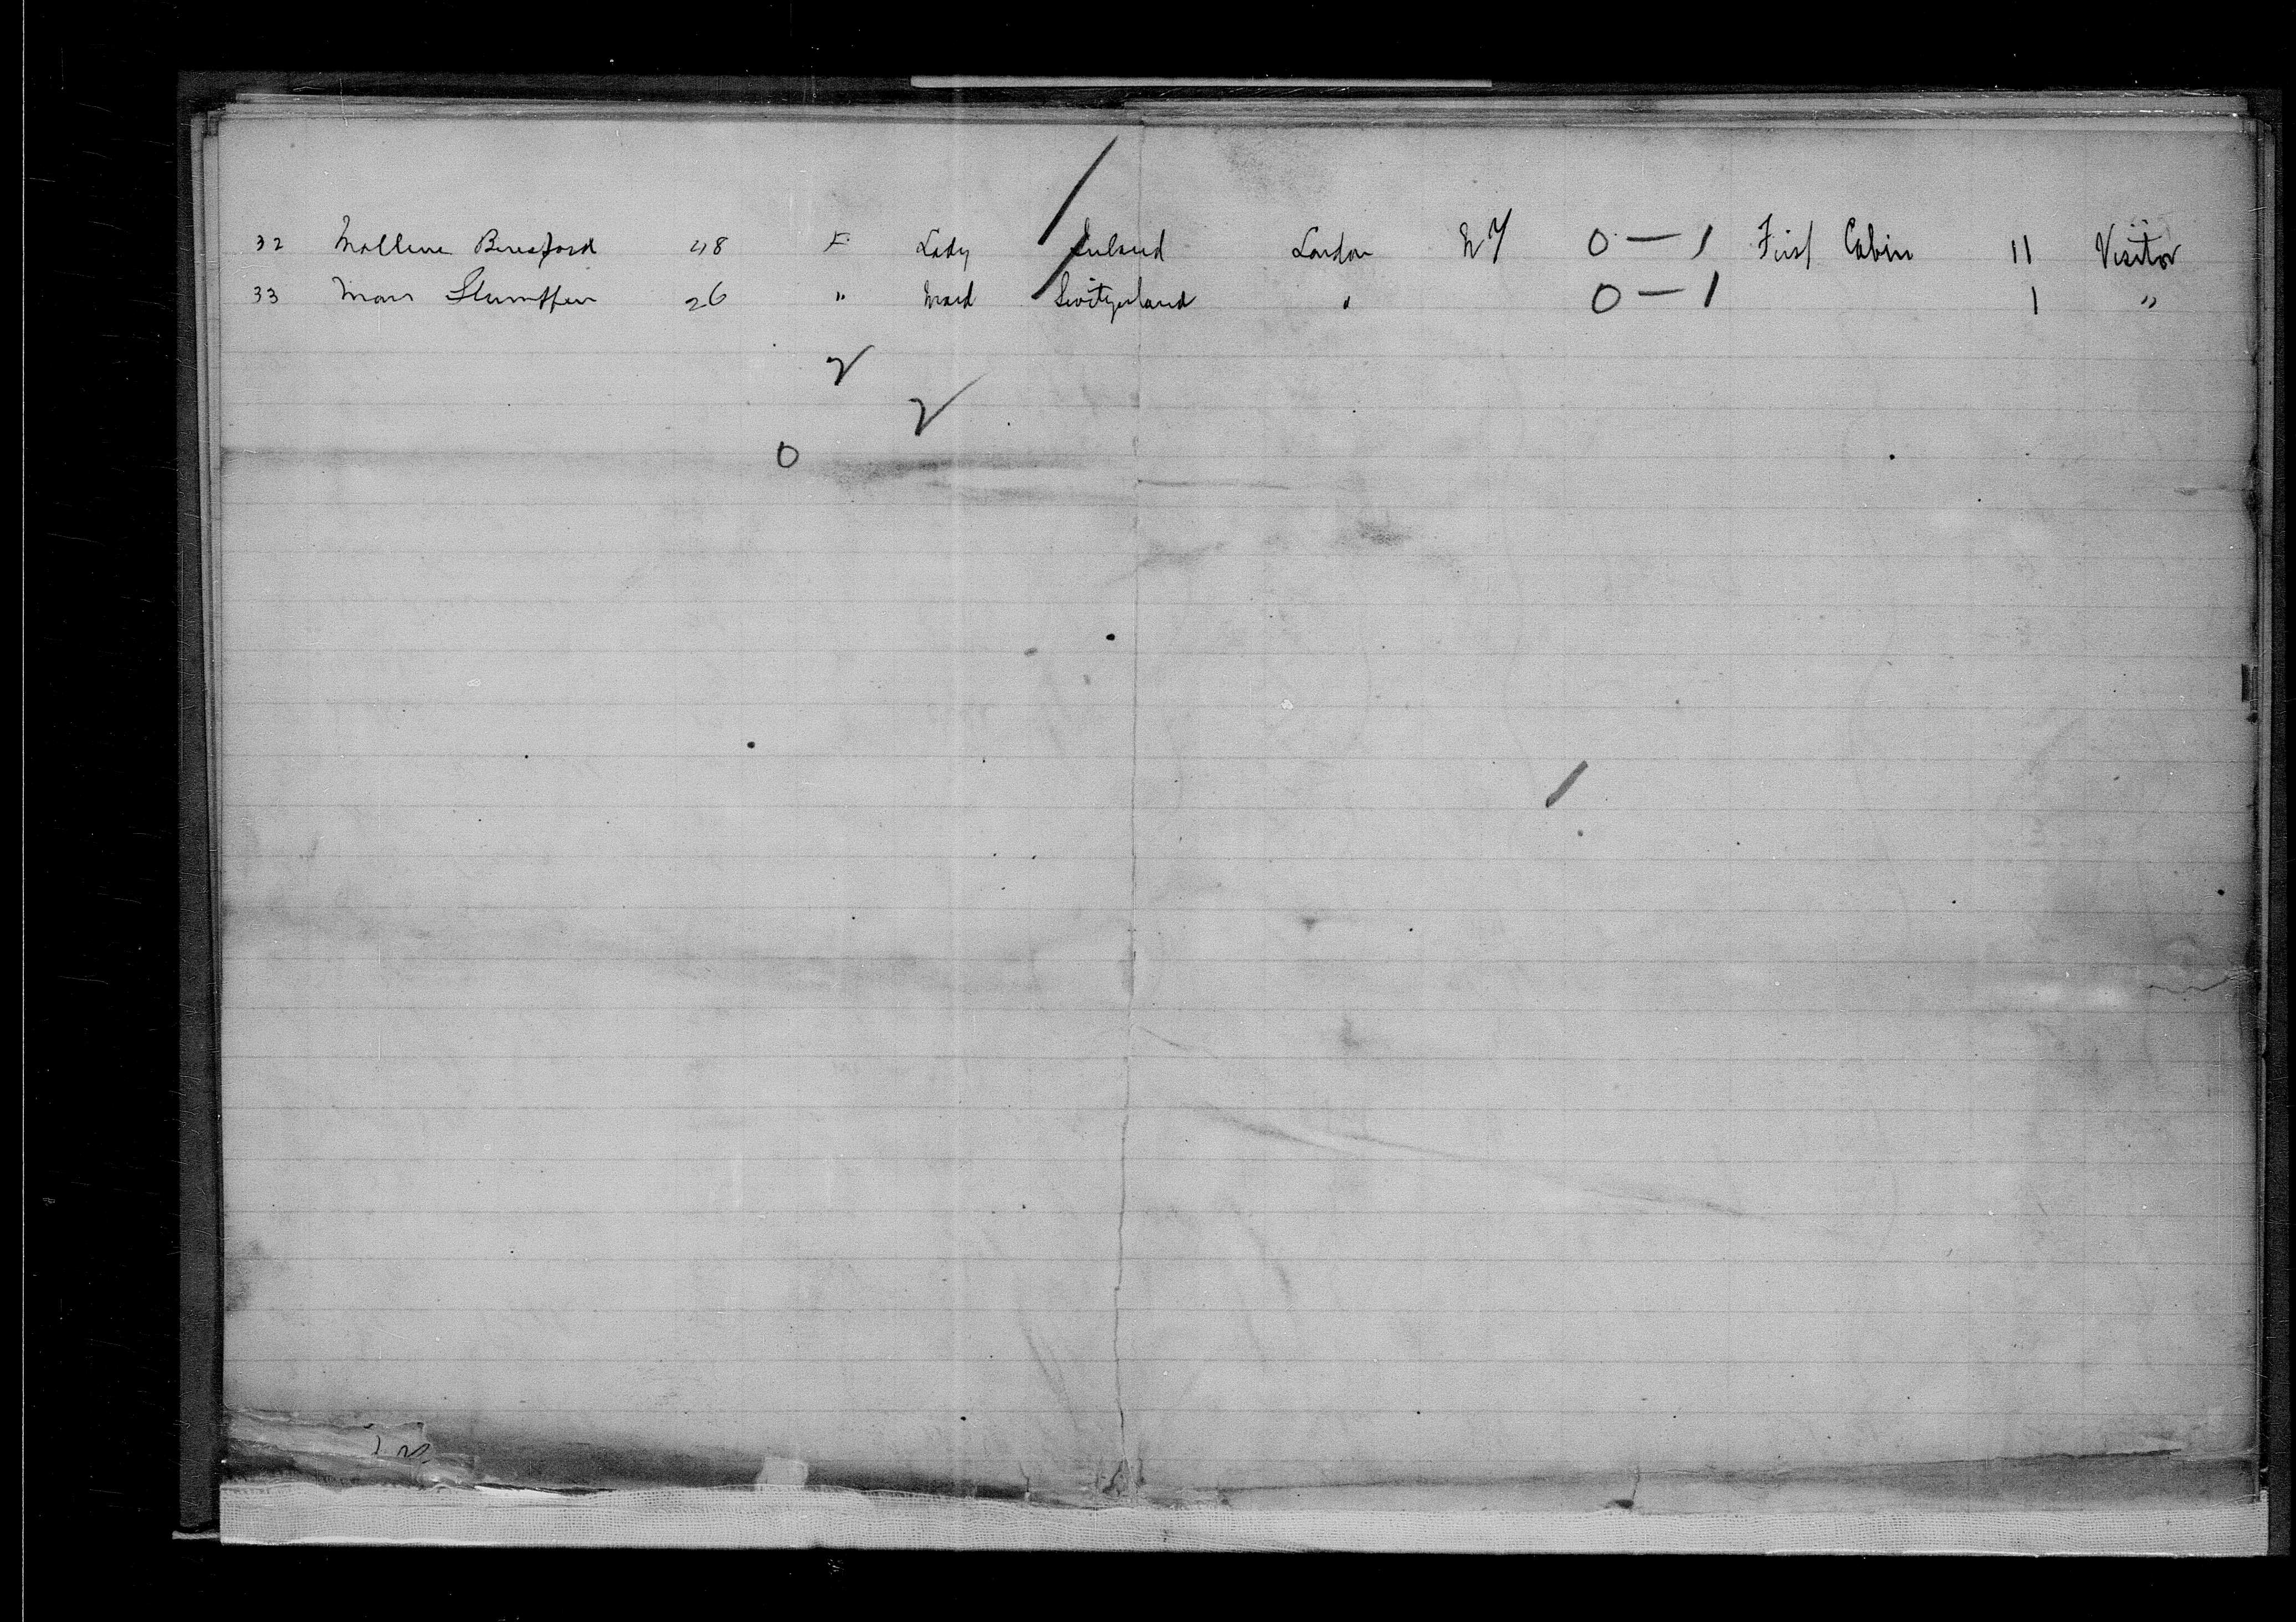 32 Beresford 48 F Lady Ireland London NY 0 — 1 First Cabin 11 Visitor
33 26 " Maid Switzerland " 0 — 1 1 "
2
2
0